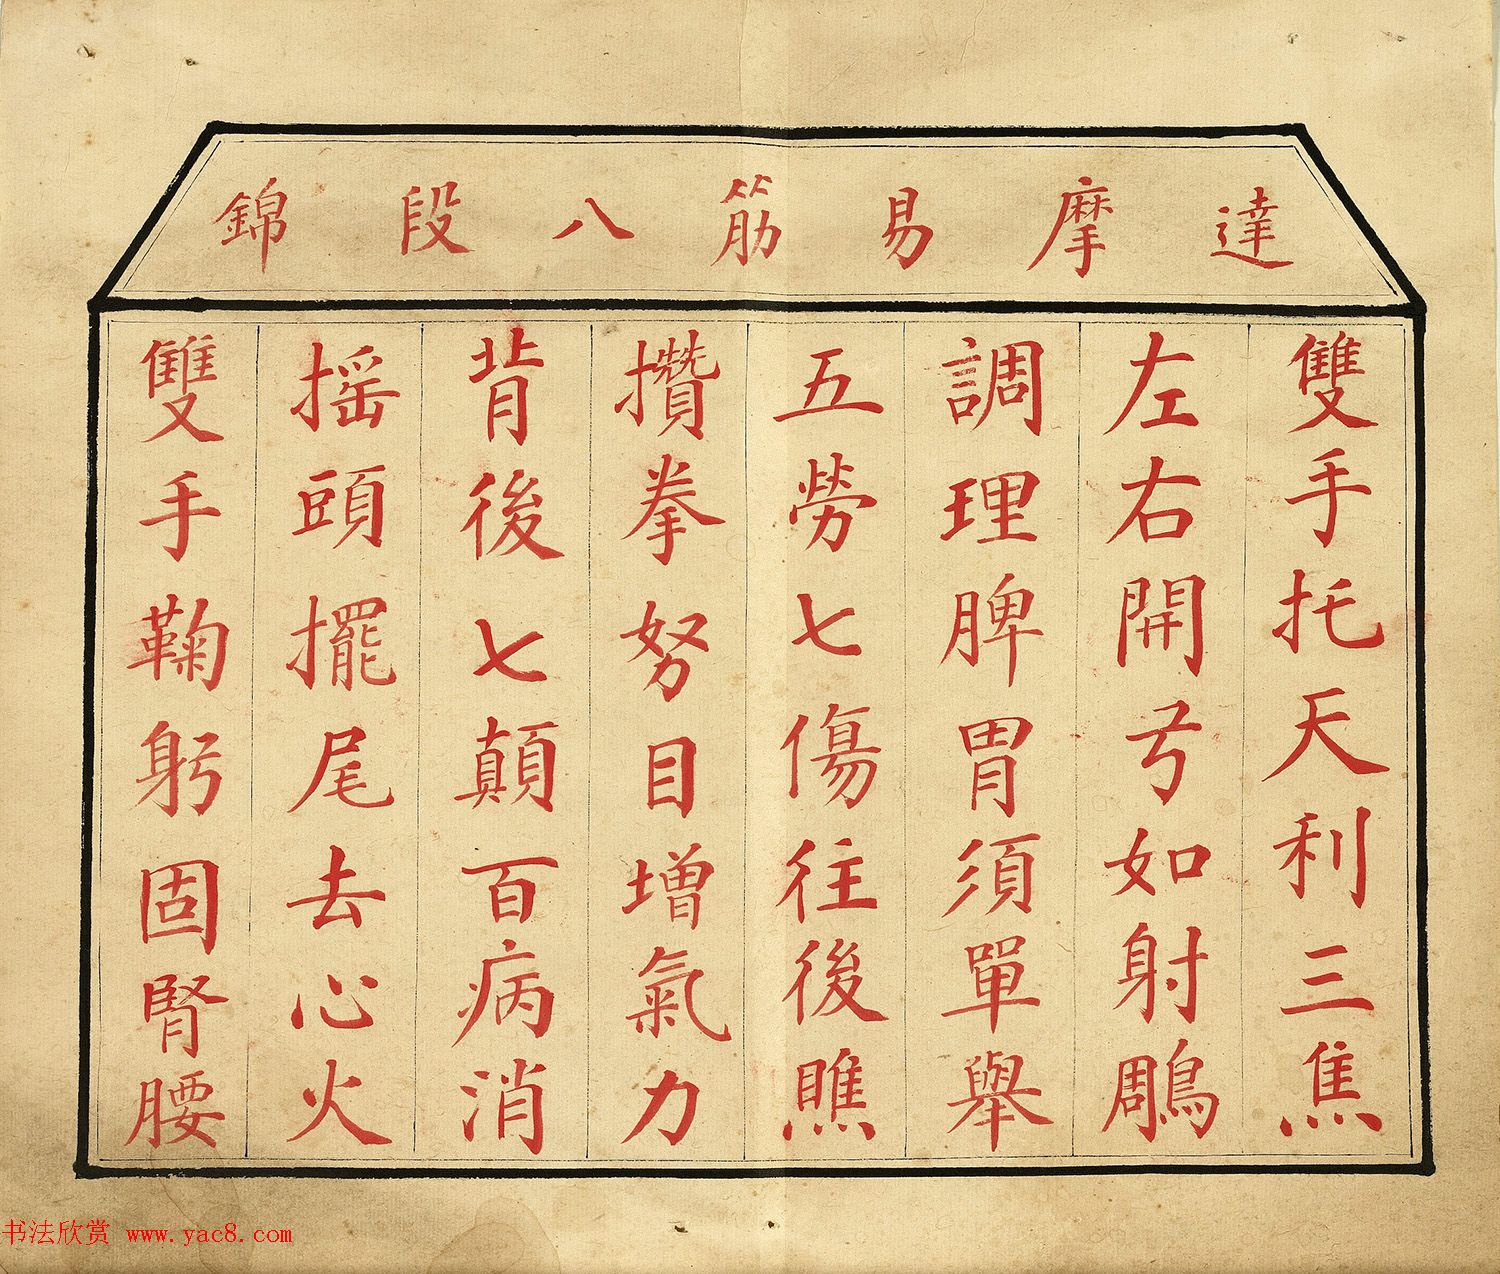 達摩易筋八段錦
雙手托天利三焦
左右開弓如射鵰
調理脾胃須單舉
五勞七傷往後瞧
攢拳努目增氣力
背後七顛百病消
搖頭擺尾去心火
雙手鞠躬固腎腰
书法欣赏 www.yac8.com